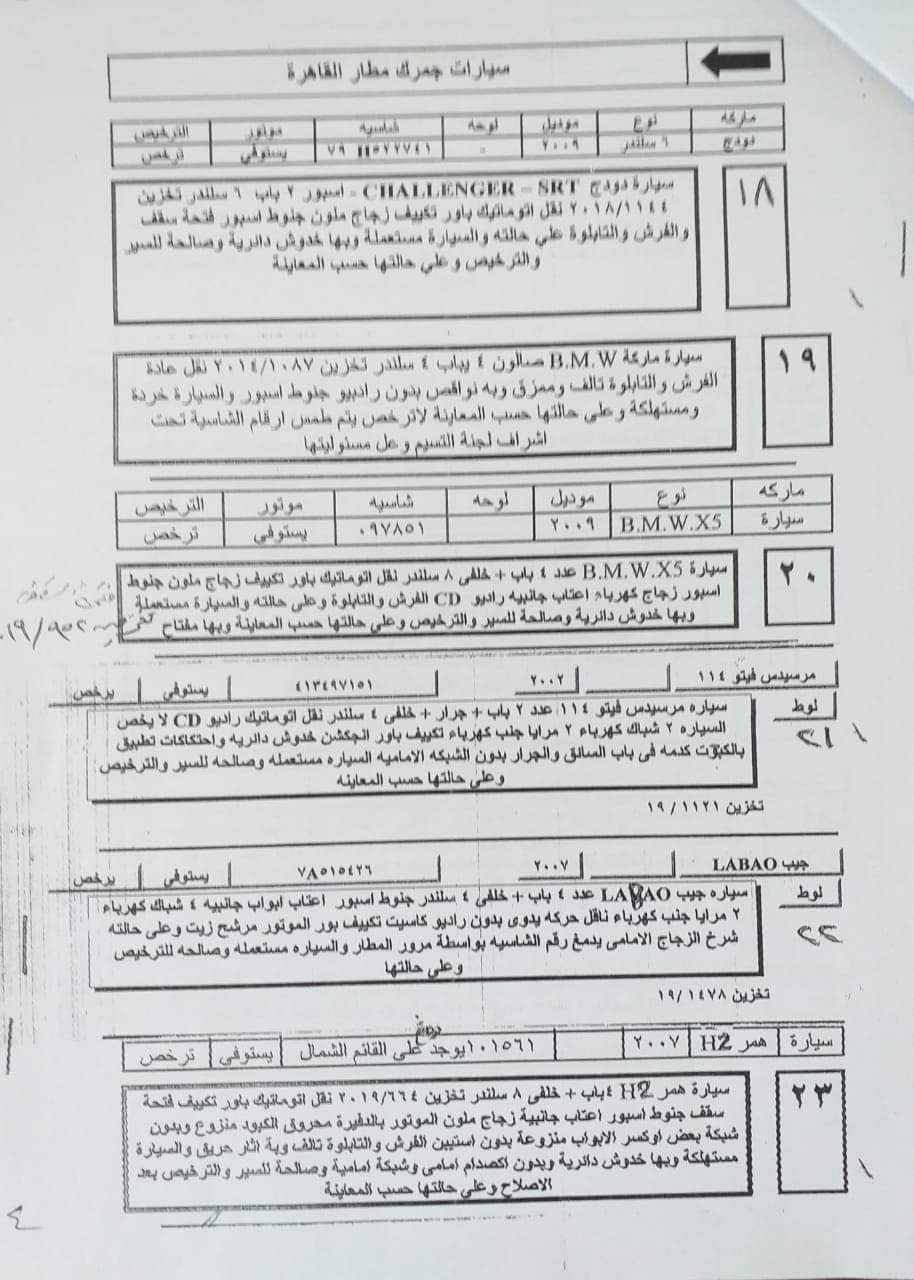 سيارات جمرك مطار القاهرة
ماركه نوع موديل لوحه شاسية موتور الترخيص
دودج ٦ سلندر ٢٠٠٩ - ٧٩ H٥٢٢٧٤١ يستوفي ترخص
١٨
سيارة دودج CHALLENGER – SRT - اسبور ٢ باب ٦ سلندر تخزين
٢٠١٨/١١٤٤ نقل اتوماتيك باور تكييف زجاج ملون جنوط اسبور فتحة سقف
والفرش والتابلوة علي حالته والسيارة مستعملة وبها خدوش دائرية وصالحة للسير
والترخيص وعلي حالتها حسب المعاينة
١٩
سيارة ماركة B.M.W صالون ٤ يباب ٤ سلندر تخزين ٢٠١٤/١٠٨٧ نقل عادة
الفرش والتابلوة تالف وممزق وبه نواقص بدون راديو جنوط اسبور والسيارة خردة
ومستهلكة وعلي حالتها حسب المعاينة لاترخص يتم طمس ارقام الشاسية تحت
اشراف لجنة التسيم وعل مسئوليتها
ماركه نوع موديل لوحه شاسيه موتور الترخيص
سيارة B.M.W.X5 ٢٠٠٩ ٠٩٧٨٥١ يستوفي ترخص
٢٠
سيارة B.M.W.X5 عدد ٤ باب + خلفي ٨ سلندر نقل اتوماتيك باور تكييف زجاج ملون جنوط
اسبور زجاج كهرباء اعتاب جانبيه راديو CD الفرش والتابلوة وعلي حالته والسيارة مستعملة
وبها خدوش دائرية وصالحة للسير والترخيص وعلي حالتها حسب المعاينة وبها مفتاح
١٩/٩٥٢
مرسيدس فيتو ١١٤ ٢٠٠٢ ٤١٣٤٩٧١٥١ يستوفي يرخص
لوط
٢١
سياره مرسيدس فيتو ١١٤ عدد ٢ باب + جرار + خلفى ٤ سلندر نقل اتوماتيك راديو CD لا يخص
السياره ٢ شباك كهرباء ٢ مرايا جنب كهرباء تكييف باور انجكشن خدوش دائريه واحتكاكات تطبيق
بالكبوت كدمه فى باب السائق والجرار بدون الشبكه الاماميه السياره مستعمله وصالحه للسير والترخيص
وعلى حالتها حسب المعاينه
تخزين ١٩/١١٢١
جيب LABAO ٢٠٠٧ ٧٨٥١٥٤٢٦ يستوفي يرخص
لوط
٢٢
سياره جيب LABAO عدد ٤ باب + خلفى ٤ سلندر جنوط اسبور اعتاب ابواب جانبيه ٤ شباك كهرباء
٢ مرايا جنب كهرباء ناقل حركه يدوى بدون راديو كاسيت تكييف بور الموتور مرشح زيت وعلى حالته
شرخ الزجاج الامامى يدمغ رقم الشاسيه بواسطة مرور المطار والسياره مستعمله وصالحه للترخيص
وعلى حالتها
تخزين ١٩/١٤٧٨
سيارة همر H2 ٢٠٠٧ ١٠١٥٦١يوجد على القائم الشمال يستوفي ترخص
٢٣
سيارة همر H2 ٤باب + خلفى ٨ سلندر تخزين ٢٠١٩/٦٦٤ نقل اتوماتيك باور تكييف فتحة
سقف جنوط اسبور اعتاب جانبية زجاج ملون الموتور بالدفيرة محروق الكبود منزوع وبدون
شبكة بعض اوكسر الابواب منزوعة بدون استبين الفرش والتابلوة تالف وبة اثار حريق والسيارة
مستهلكة وبها خدوش دائرية وبدون اكصدام امامى وشبكة امامية وصالحة للسير والترخيص بعد
الاصلاح وعلي حالتها حسب المعاينة
٤